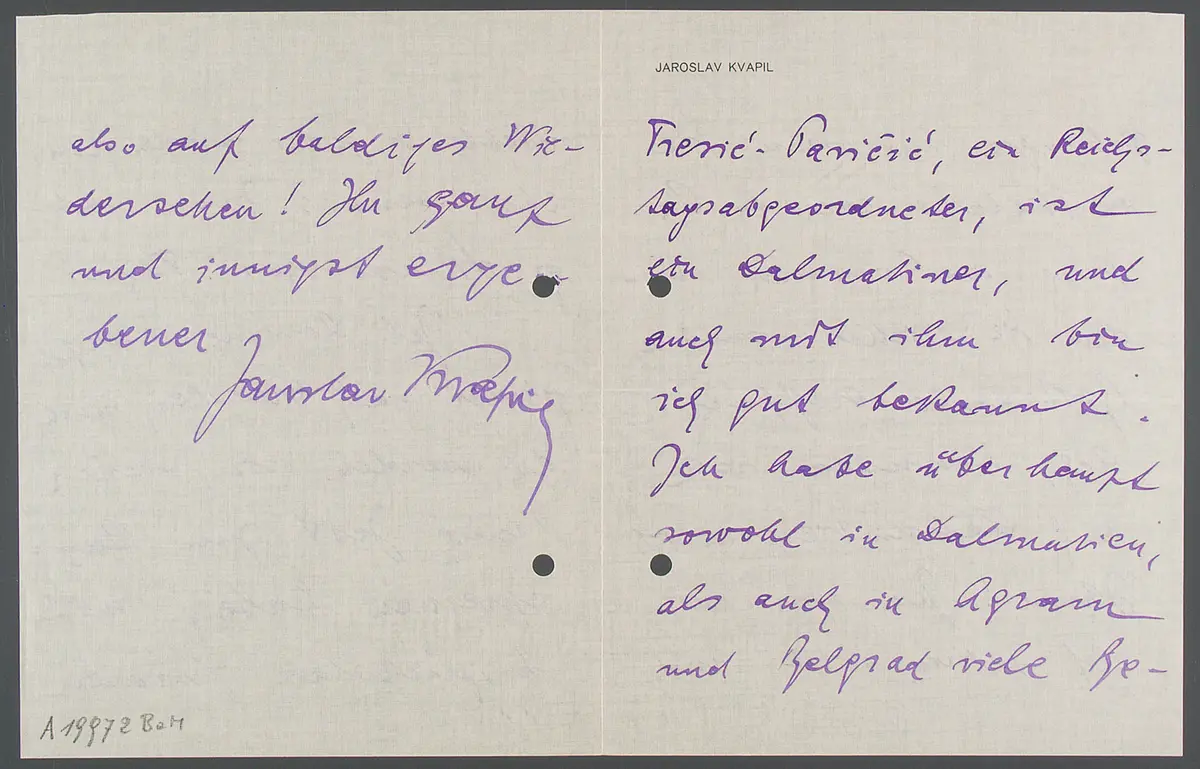 also auf baldiges Wie-
dersehen! Ihr ganz
und innigst erge-
bener
Jaroslav Kvapil
A 19972 BaM
JAROSLAV KVAPIL
Tresić-Pavičić, ein Reichs-
tagsabgeordneter, ist
ein Dalmatiner, und
auch mit ihm bin
ich gut bekannt.
Ich habe überhaupt
sowohl in Dalmatien,
als auch in Agram
und Belgrad viele Be-